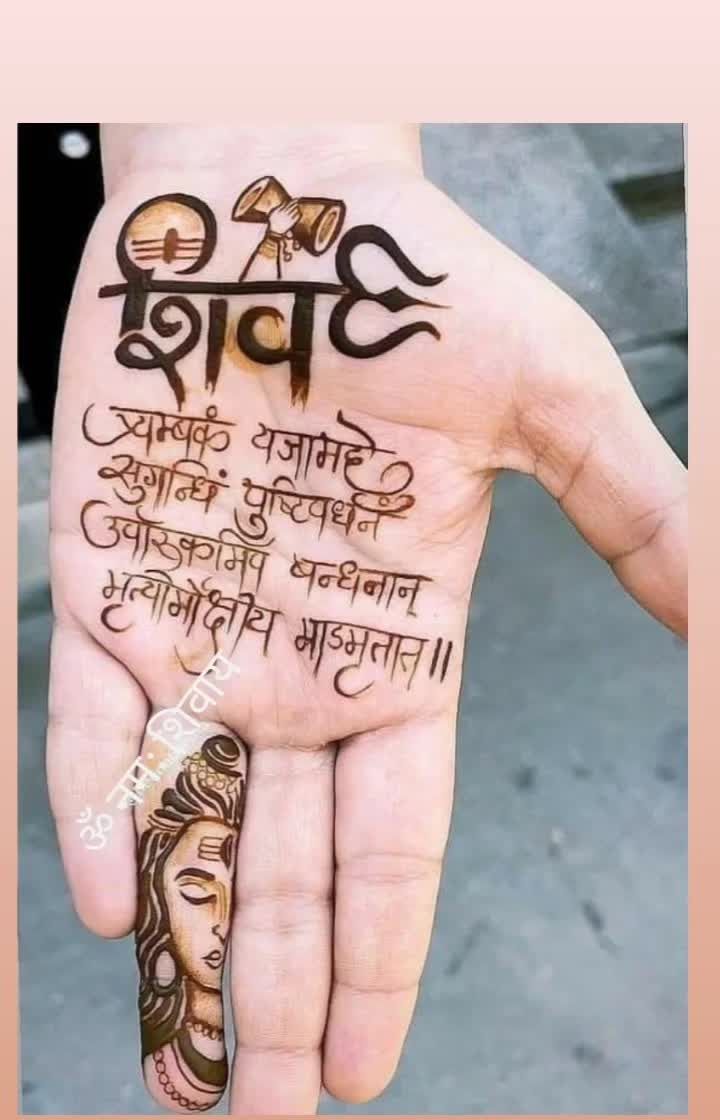 शिव
त्र्यम्बकं यजामहे
सुगन्धिं पुष्टिवर्धनं
उर्वारुकमिव बन्धनान्
मृत्योर्मोक्षीय माऽमृतात् ||
ॐ नमः शिवाय